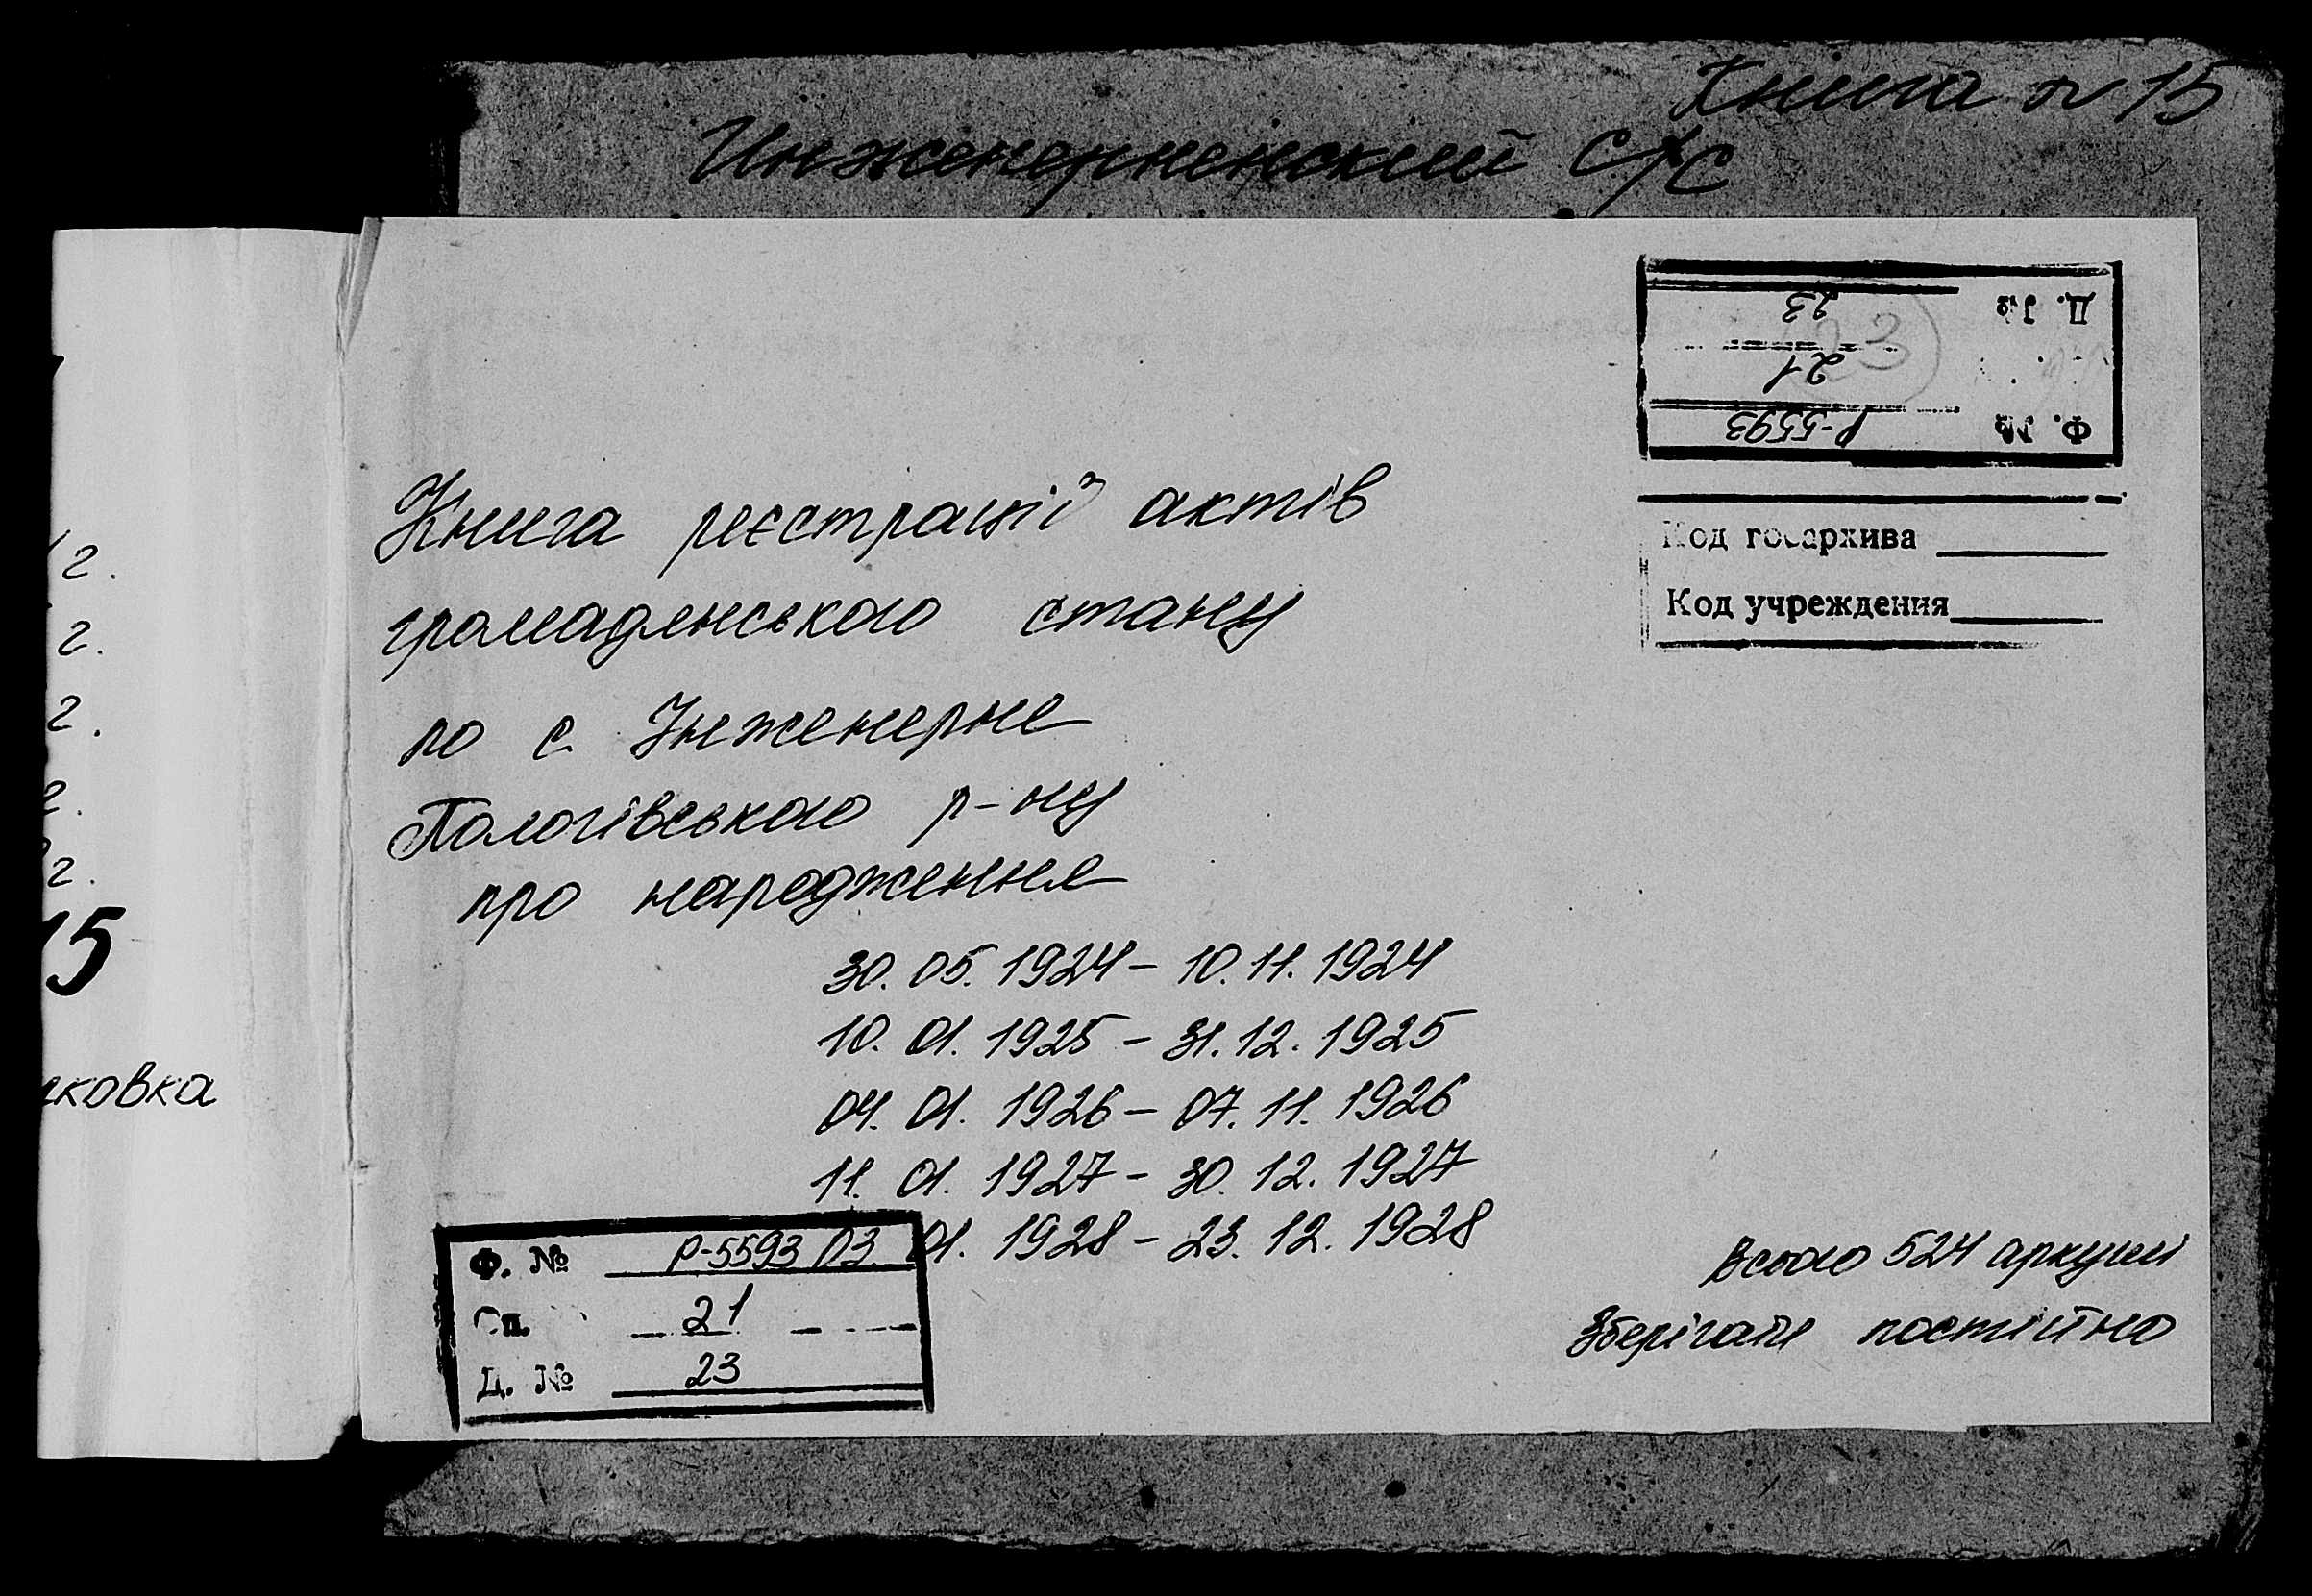 Книга № 15
Инженерненский с/с
Д. № 23
21
Ф. № Р-5593
Код госархива
Код учреждения
Книга реєстрації актів
громадянського стану
по с. Інженерне
Пологівського р-ну
про народження
30.05.1924 – 10.11.1924
10.01.1925 – 31.12.1925
04.01.1926 – 07.11.1926
11.01.1927 – 30.12.1927
03.01.1928 – 23.12.1928
Ф. № Р-5593
Оп. 21
Д. № 23
Всього 524 аркуші
Зберігати постійно
г.
г.
г.
г.
г.
15
ковка